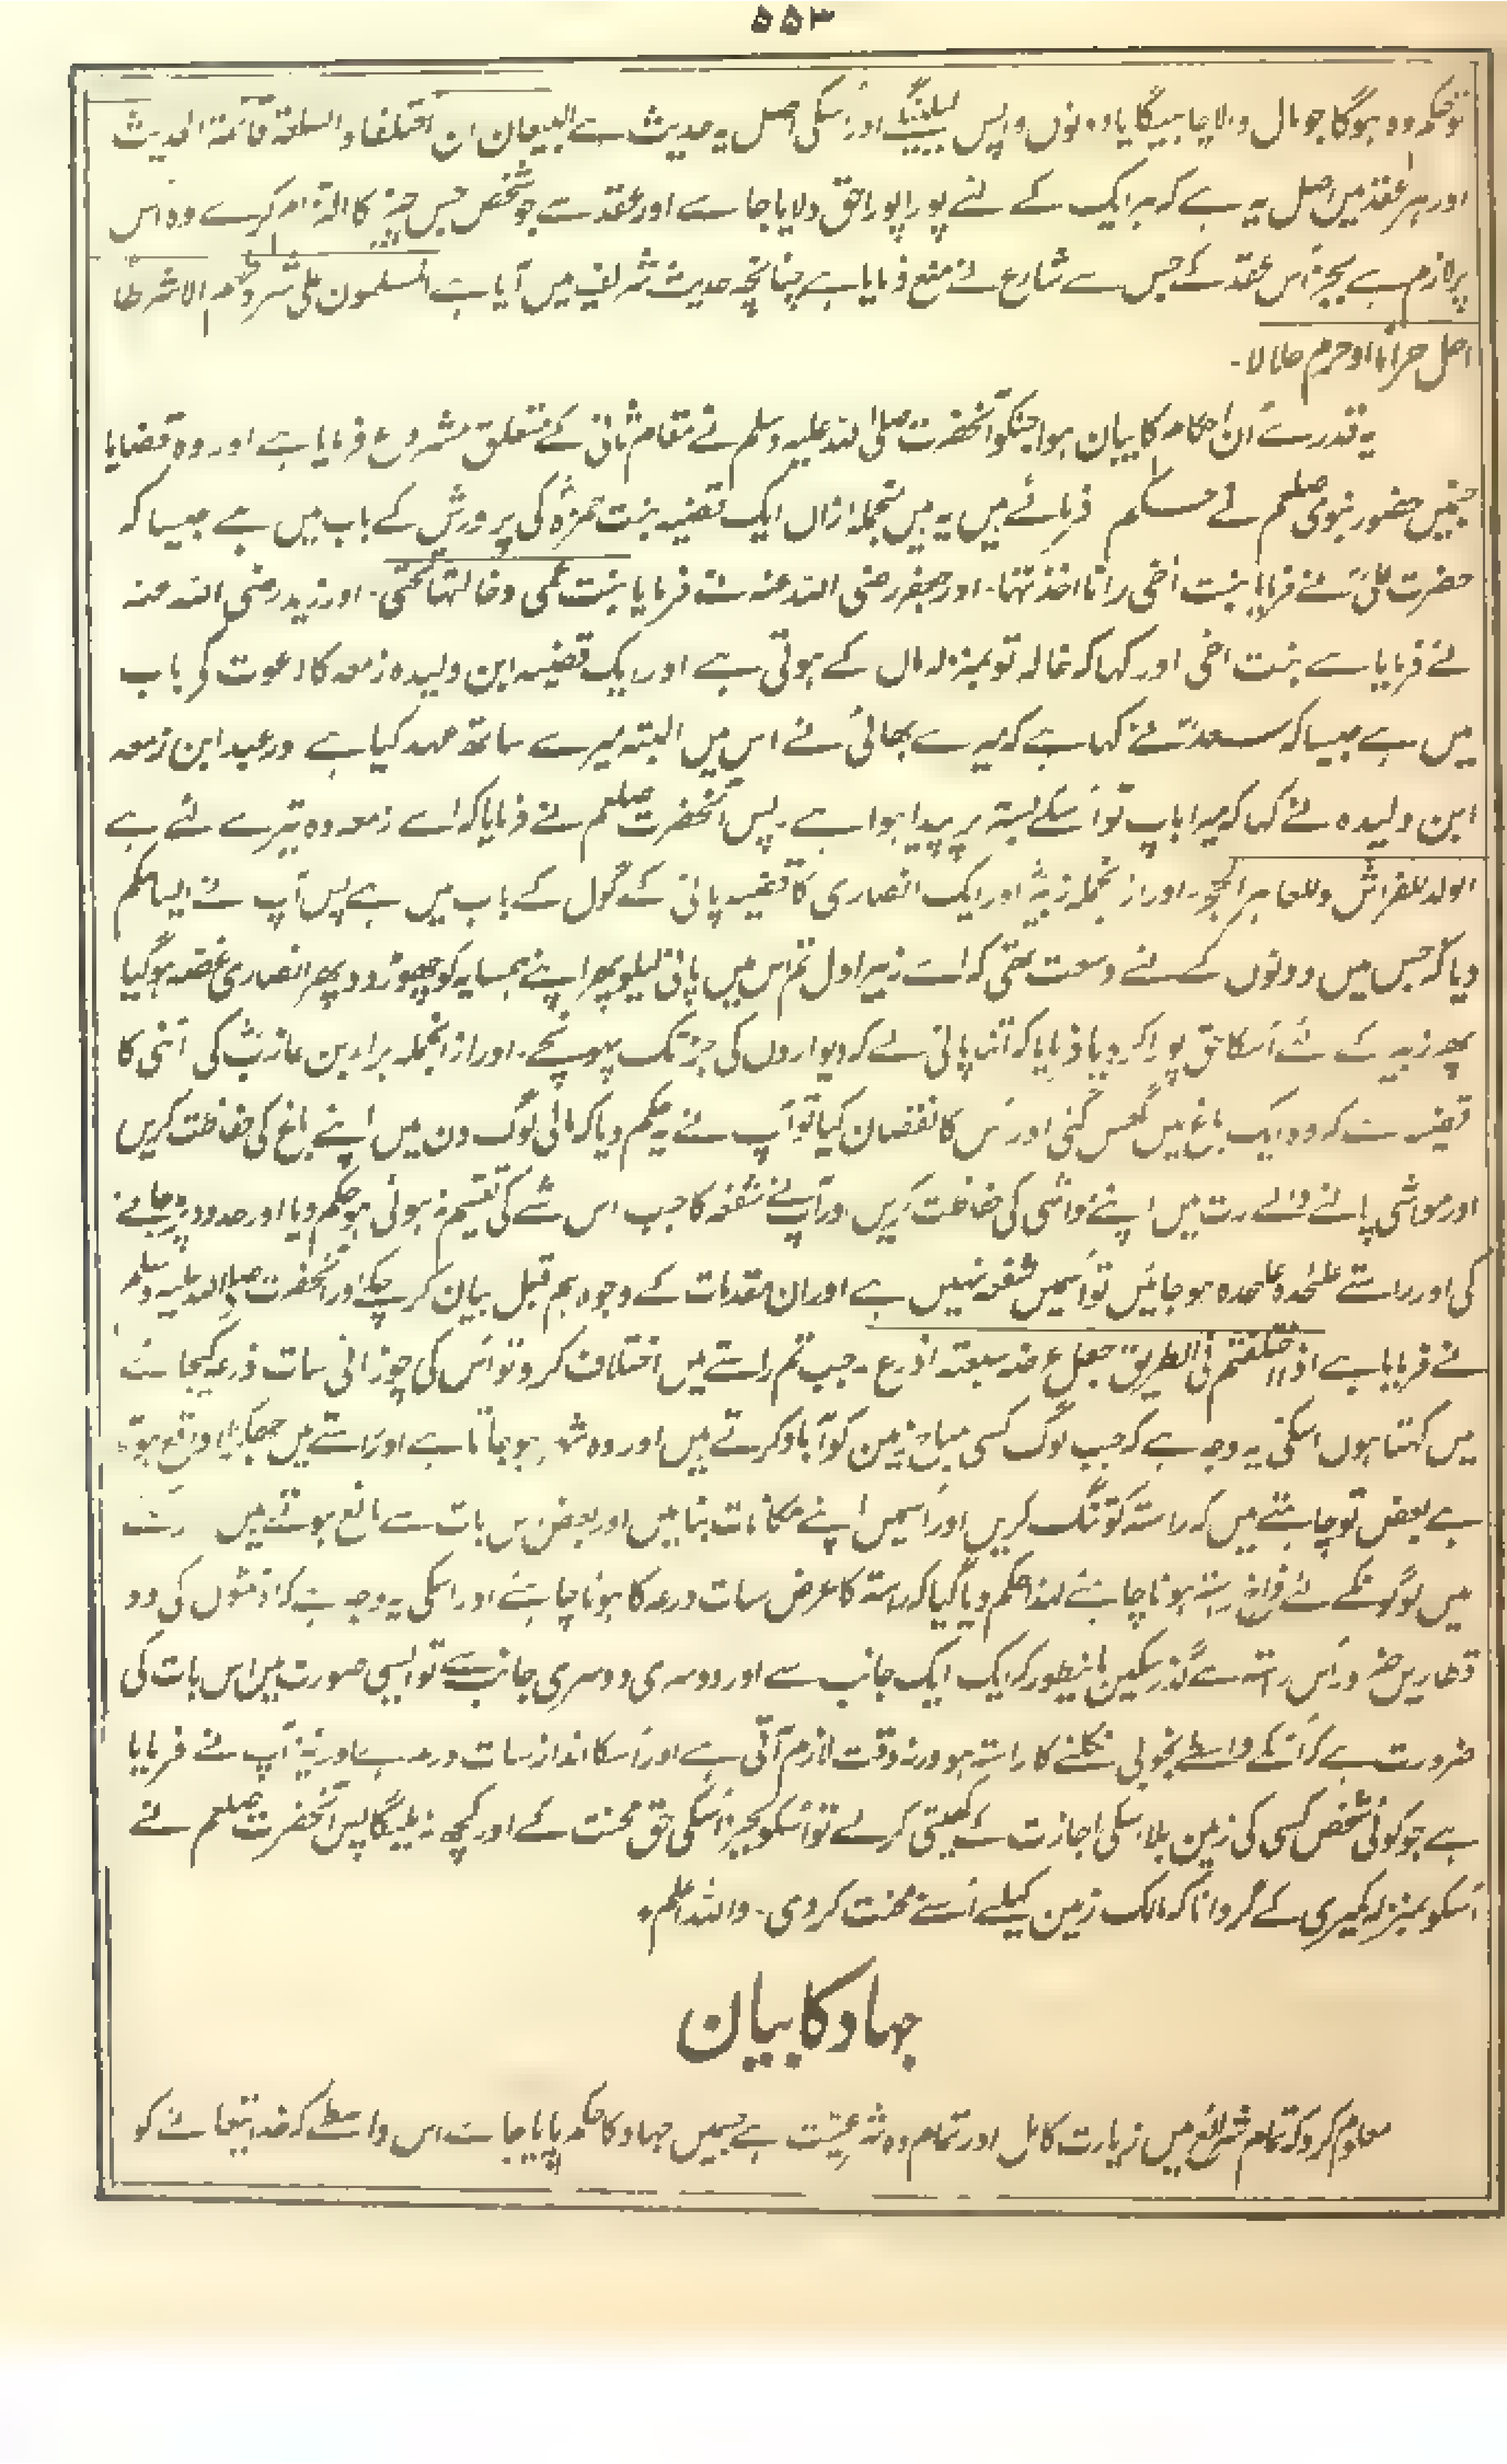 ۵۵۳
تو حکم وہ ہوگا جو مال والا چاہیگا یا دونوں واپس لیلینگے اور اُسکی اصل یہ حدیث ہے البیعان ان اختلفا والسلعۃ قائمۃ الحدیث
اور ہر عقد میں اصل یہ ہے کہ ہر ایک کے لئے پورا پورا حق دلایا جاے اور عقد سے جو شخص جس چیز کا التزام کرے وہ اُس
پر لازم ہے بجز اُس عقد کے جس سے شارع نے منع فرمایا ہے چنانچہ حدیث شریف میں آیا ہے المسلمون علی شروطہم الا شرطا
احل حراما او حرم حلالا۔
یہ قدرے اُن احکام کا بیان ہوا جنکو آنحضرت صلی اللہ علیہ وسلم نے مقام ثانی کے متعلق مشروع فرمایا ہے اور وہ قضایا
جنمیں حضور نبوی صلعم نے حکم فرمائے ہیں یہ ہیں منجملہ ازاں ایک قضیہ بنت حمزہؓ کی پرورش کے باب میں ہے جیسا کہ
حضرت علیؓ نے فرمایا بنت اخی وانا اخذتہا۔ اور جعفر رضی اللہ عنہ نے فرمایا بنت عمی وخالتہا تحتی۔ اور زید رضی اللہ عنہ
نے فرمایا ہے بنت اخی اور کہا کہ خالہ تو بمنزلہ ماں کے ہوتی ہے اور ایک قضیہ ابن ولیدہ زمعہ کا دعوت کی باب
میں ہے جیسا کہ سعدؓ نے کہا ہے کہ میرے بھائی نے اس میں البتہ میرے ساتھ عہد کیا ہے اور عبد ابن زمعہ
ابن ولیدہ نے کہا کہ میرا باپ تو اُسکے بستر پر پیدا ہوا ہے۔ پس آنحضرت صلعم نے فرمایا کہ اے زمعہ وہ تیرے لئے ہے
الولد للفراش وللعاہر الحجر۔ اور از انجملہ زبیرؓ اور ایک انصاری کا قضیہ پانی کے گول کے باب میں ہے پس آپ نے ایسا حکم
دیا کہ جس میں دونوں کے لئے وسعت تھی کہ اے زبیر اول تم اس میں پانی لیلو پھر اپنے ہمسایہ کو چھوڑ دو پھر انصاری غصہ ہوگیا
پھر زبیر کے لئے اُسکا حق پورا کر دیا فرمایا کہ اتنا پانی لے کہ دیواروں کی جڑ تک پہونچے۔ اور از انجملہ براء بن عازبؓ کی اُنٹنی کا
قضیہ ہے کہ وہ ایک باغ میں گھس گئی اور اُس کا نقصان کیا تو آپ نے یہ حکم دیا کہ مالی لوگ دن میں اپنے باغ کی حفاظت کریں
اور مواشی پالنے والے رات میں اپنے مواشی کی حفاظت کریں اور آپنے شفعہ کا جب اس شے کی تقسیم نہ ہوئی ہو حکم دیا اور حدود پڑ جانے
کی اور راستے علٰحدہ علٰحدہ ہو جائیں تو اُسمیں شفعہ نہیں ہے اور ان مقدمات کے وجوہ ہم قبل بیان کر چکے اور آنحضرت صلی اللہ علیہ وسلم
نے فرمایا ہے اذا اختلفتم فی الطریق جعل عرضہ سبعۃ اذرع۔ جب تم راستے میں اختلاف کرو تو اُس کی چوڑائی سات ذرعہ کیجاے
میں کہتا ہوں اسکی یہ وجہ ہے کہ جب لوگ کسی مباح زمین کو آباد کرتے ہیں اور وہ شہر ہو جاتا ہے اور راستے میں جھگڑا واقع ہوتا
ہے بعض تو چاہتے ہیں کہ راستہ کو تنگ کریں اور اُسمیں اپنے مکانات بنائیں اور بعض اس بات سے مانع ہوتے ہیں
میں لوگونکے لئے فراخ راستہ ہونا چاہئے لہذا حکم دیا گیا کہ راستہ کا عرض سات ذرعہ کا ہونا چاہئے اور اسکی یہ وجہ ہے کہ اونٹوں کی دو
قطاریں ضرور اُس راستہ سے گذر سکیں باینطور کہ ایک ایک جانب سے اور دوسری دوسری جانب سے تو ایسی صورت میں اس بات کی
ضرورت ہے کہ اُنکے واسطے بخوبی نکلنے کا راستہ ہو ورنہ دقت لازم آتی ہے اور اُسکا انداز سات ذرعہ ہے اور نیز آپ نے فرمایا
ہے جو کوئی شخص کسی کی زمین بلا اسکی اجازت کے کھیتی کرلے تو اُسکو بجز اُسکی حق محنت کے اور کچھ نہ ملیگا پس آنحضرت صلعم نے
اُسکو بمنزلہ کمیری کے گردانا کہ مالک زمین کیلئے اُسنے محنت کر دی۔ واللہ اعلم۔
جہاد کا بیان
معلوم کرو کہ تمام شرائع میں زیادت کامل اور تمام وہ شریعت ہے جسمیں جہاد کا حکم پایا جاے اس واسطے کہ خدا تعالے کو